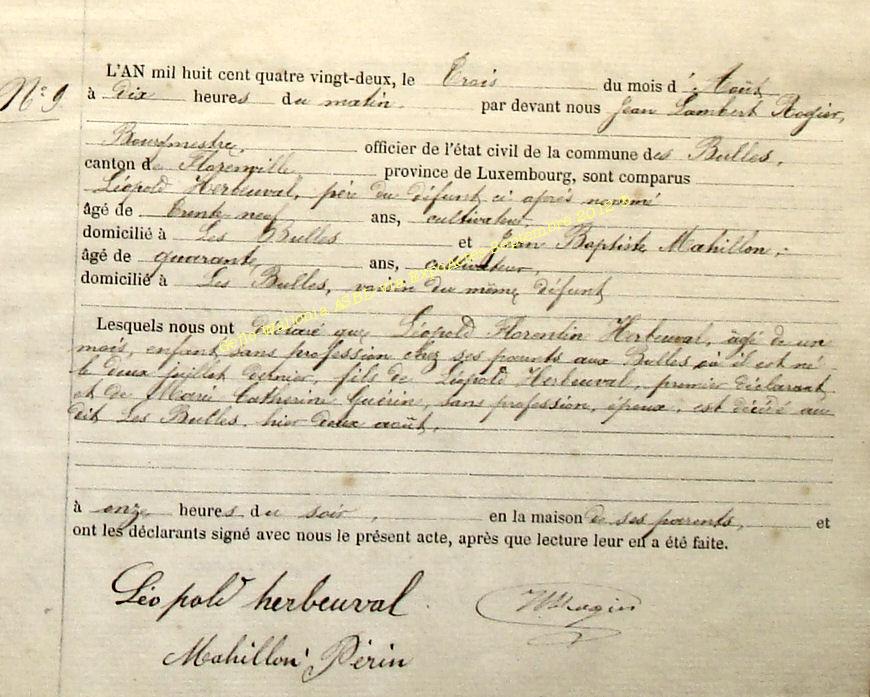 L'AN mil huit cent quatre vingt-deux, le Trois du mois d' Août
N° 9
à dix heures du matin. par devant nous Jean Lambert Rogier,
Bourgmestre, officier de l'état civil de la commune des Bulles,
canton de Florenville province de Luxembourg, sont comparus
Léopold Herbeuval, père du défunt ci après nommé
âgé de trente neuf ans, cultivateur
domicilié à Les Bulles et Jean Baptiste Mahillon,
âgé de quarante ans, cultivateur,
domicilié à Les Bulles, voisin du même défunt
Lesquels nous ont déclaré que Léopold Florentin Herbeuval, âgé de un
mois, enfant, sans profession chez ses parents aux Bulles où il est né
le deux juillet dernier, fils de Léopold Herbeuval, premier déclarant
et de Marie Catherine Guérin, sans profession, époux, est décédé au
dit Les Bulles, hier deux août,
à onze heures du soir, en la maison de ses parents, et
ont les déclarants signé avec nous le présent acte, après que lecture leur en a été faite.
Léopold herbeuval
Mahillon Périn